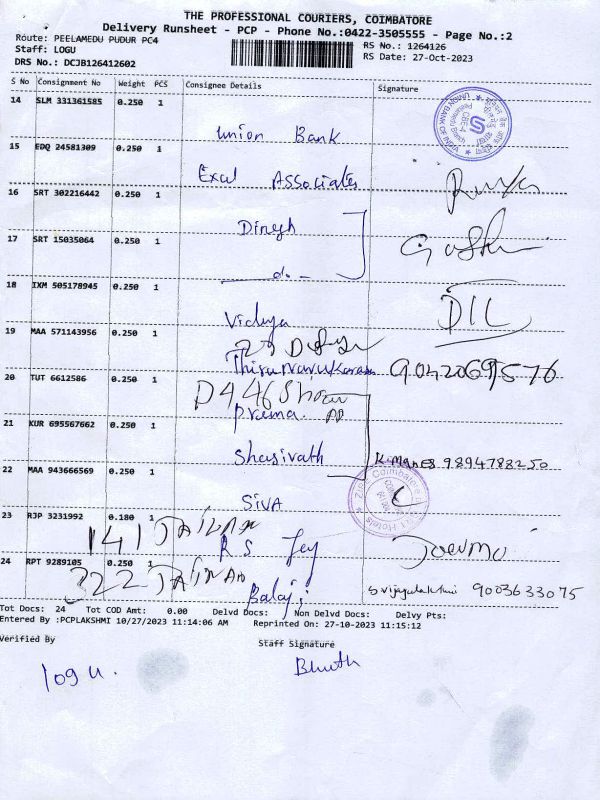 THE PROFESSIONAL COURIERS, COIMBATORE
Delivery Runsheet - PCP - Phone No.:0422-3505555 - Page No.:2
Route: PEELAMEDU PUDUR PC4
Staff: LOGU
RS No.: 1264126
DRS No.: DCJB126412602
RS Date: 27-Oct-2023
S No Consignment No Weight PCS Consignee Details Signature
14 SLM 331361585 0.250 1
Union Bank
15 EDQ 24581309 0.250 1
Excel Associates
16 SRT 302216442 0.250 1
Dinesh
17 SRT 15035064 0.250 1
do
18 IXM 505178945 0.250 1
Vidhya
DIL
19 MAA 571143956 0.250 1
Thirunavukarasu 9042069576
20 TUT 6612586 0.250 1
Prema
21 KUR 695567662 0.250 1
Shasivath 9894788250
22 MAA 943666569 0.250 1
SIVA
23 RJP 3231992 0.180 1
141
R S Jey
24 RPT 9289105 0.250 1
322
Balaji
9003633075
Tot Docs: 24 Tot COD Amt: 0.00 Delvd Docs: Non Delvd Docs: Delvy Pts:
Entered By :PCPLAKSHMI 10/27/2023 11:14:06 AM Reprinted On: 27-10-2023 11:15:12
Verified By Staff Signature
logu.